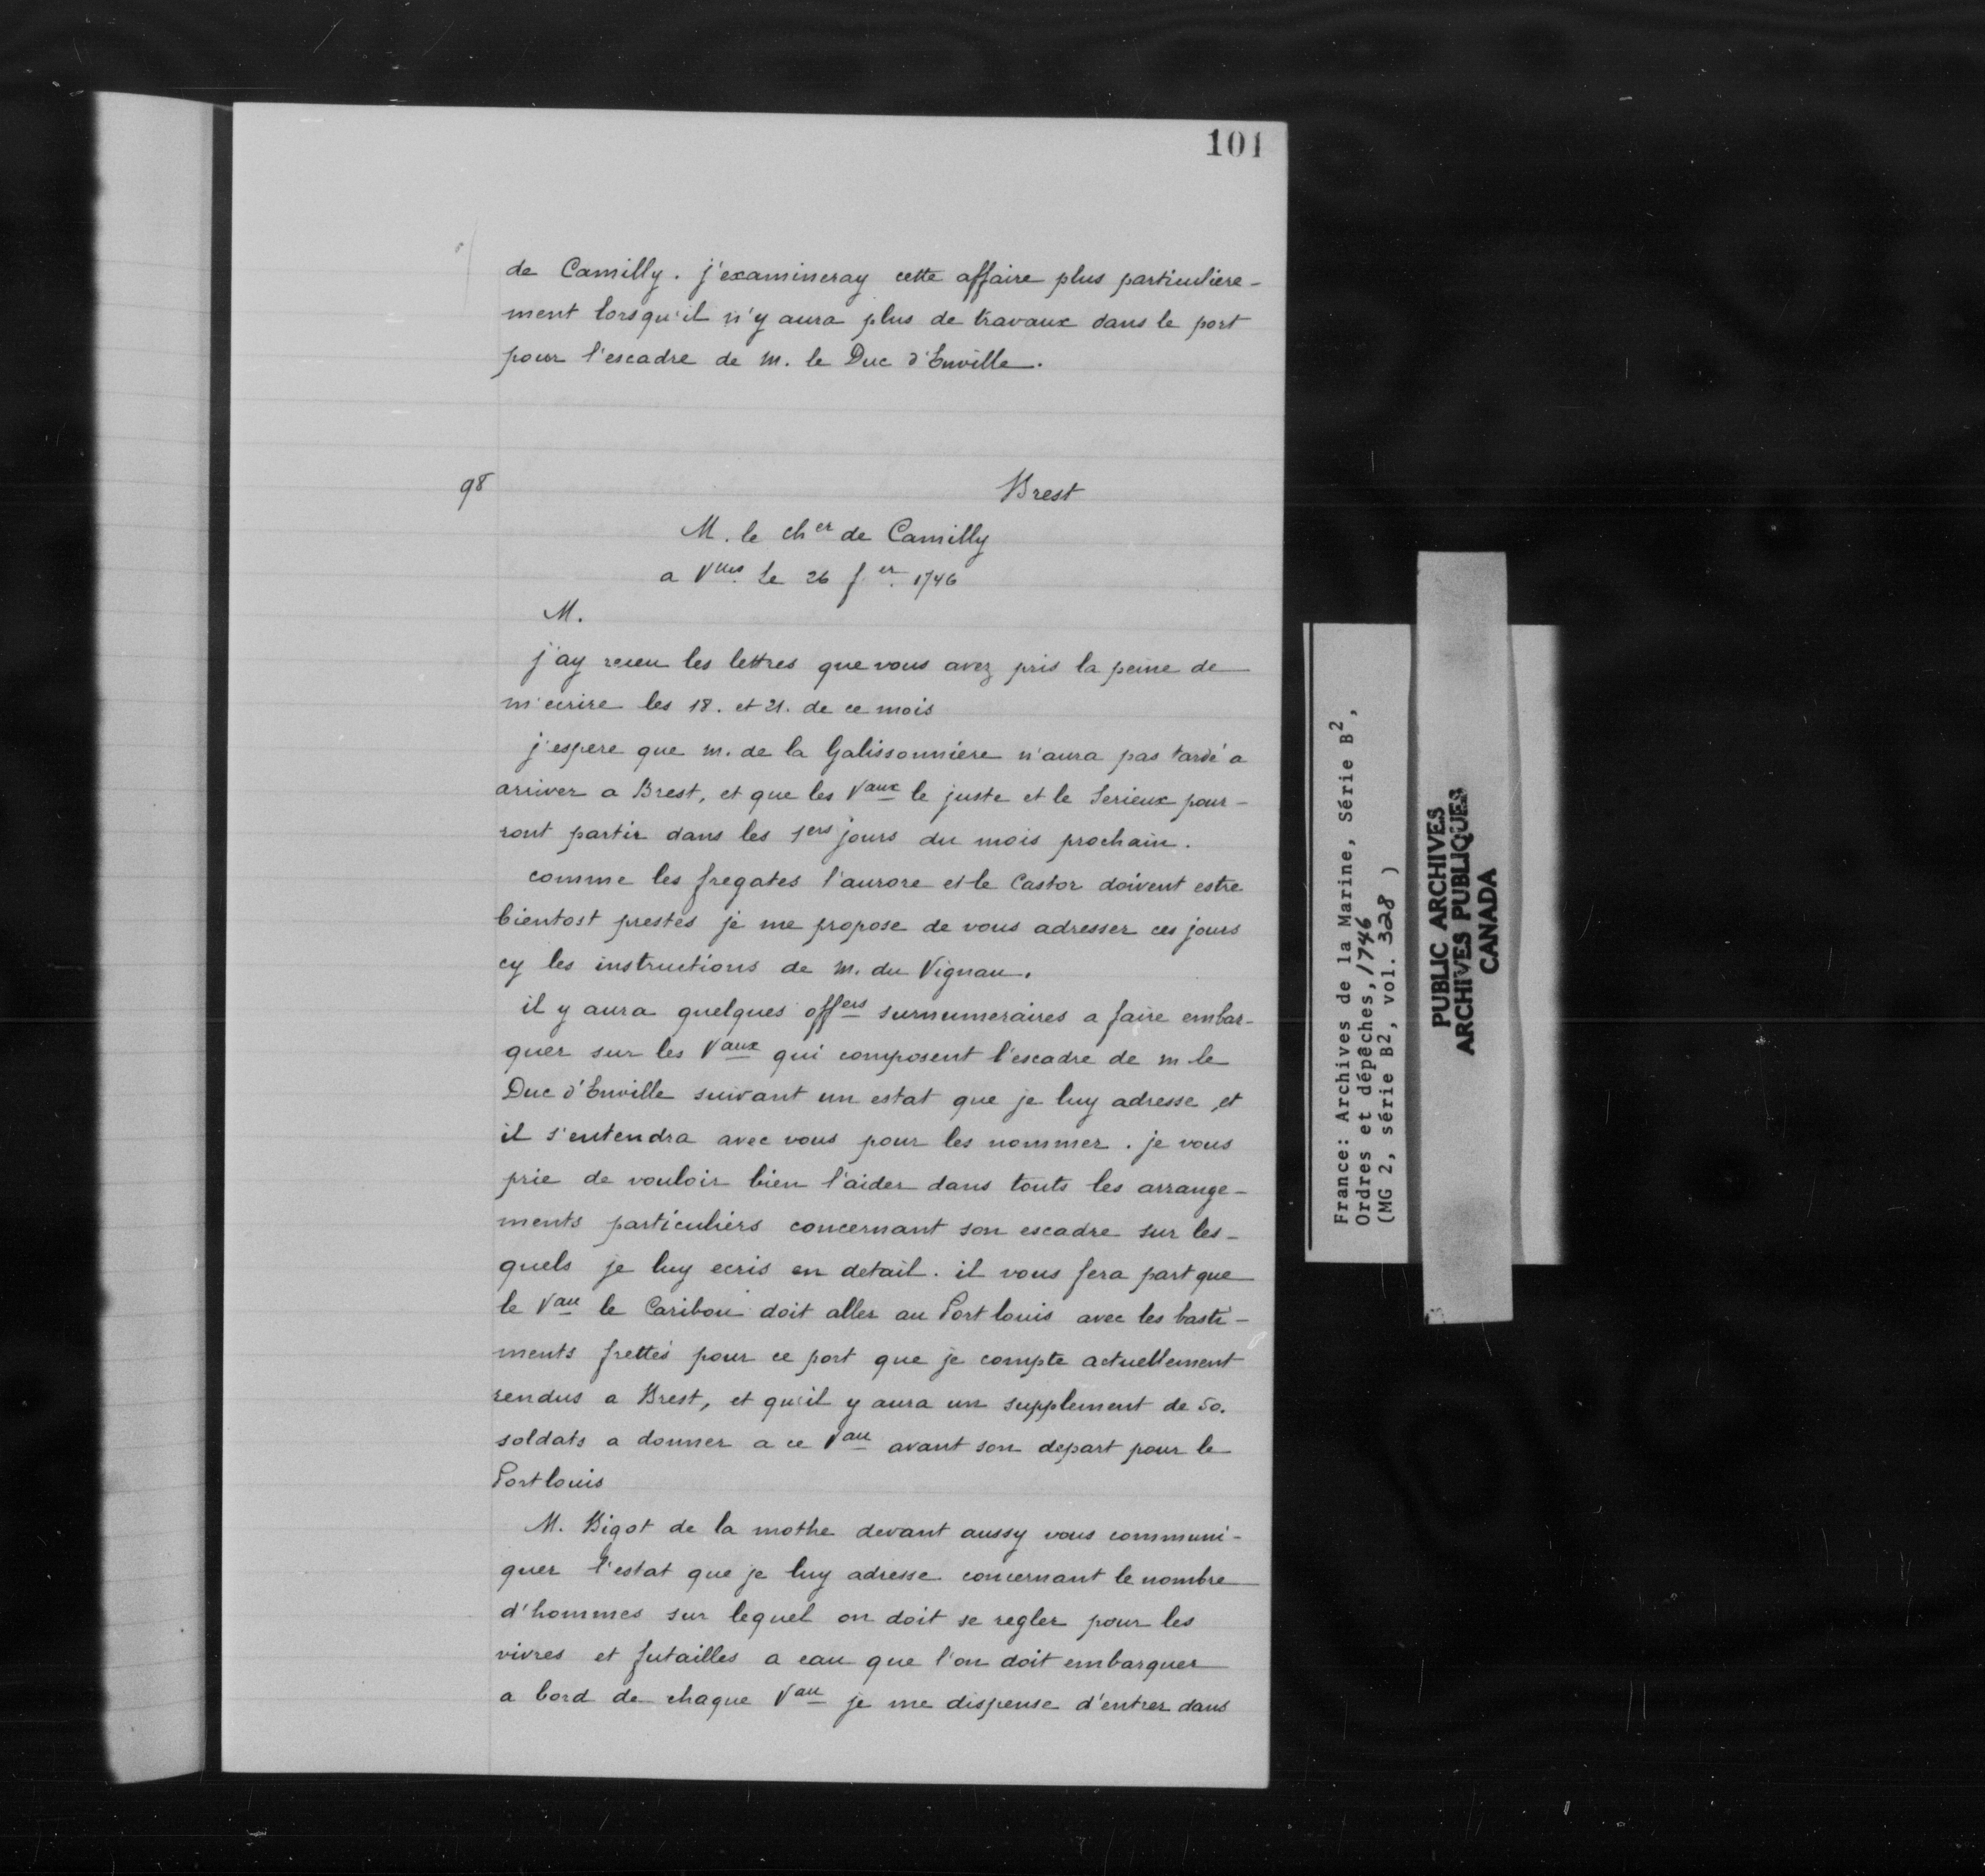 101
de Camilly. j'examineray cette affaire plus particuliere-
ment lorsqu'il n'y aura plus de travaux dans le port
pour l'escadre de M. le Duc d'Enville.
98
Brest
M. le cher de Camilly
a Vlles le 26 fer 1746
M.
j'ay receu les lettres que vous avez pris la peine de
m'ecrire les 18. et 21. de ce mois
j'espere que M. de la Galissonniere n'aura pas tardé a
arriver a Brest, et que les Vaux le juste et le Serieux pour-
ront partir dans les 1ers jours du mois prochain.
comme les fregates l'aurore et le Castor doivent estre
bientost prestes je me propose de vous adresser ces jours
cy les instructions de M. du Vignau.
il y aura quelques offers surnumeraires a faire embar-
quer sur les Vaux qui composent l'escadre de M le
Duc d'Enville suivant un estat que je luy adresse, et
il s'entendra avec vous pour les nommer. je vous
prie de vouloir bien l'aider dans touts les arrange-
ments particuliers concernant son escadre sur les-
quels je luy ecris en detail. il vous fera part que
le Vau le Caribou doit aller au Port louis avec les basti-
ments frettés pour ce port que je compte actuellement
rendus a Brest, et qu'il y aura un supplement de 50.
soldats a donner a ce Vau avant son depart pour le
Port louis
M. Bigot de la mothe devant aussy vous communi-
quer l'estat que je luy adresse concernant le nombre
d'hommes sur lequel on doit se regler pour les
vivres et futailles a eau que l'on doit embarquer
a bord de chaque Vau je me dispense d'entrer dans
France: Archives de la Marine, Série B2,
Ordres et dépêches, 1746
(MG 2, série B2, vol. 328 )
PUBLIC ARCHIVES
ARCHIVES PUBLIQUES
CANADA